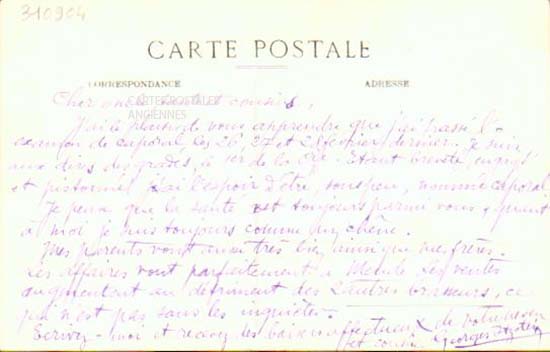 310904
CARTE POSTALE
CORRESPONDANCE
ADRESSE
CARTES POSTALES
ANCIENNES
Cher oncle, tante et cousins,
J'ai le plaisir de vous apprendre que j'ai passé l'
examen de caporal les 26, 27 et 28 dernier. Je suis,
aux dires des gradés, le 1er de la Cie. Etant breveté
et j'ai l'espoir d'être, sous peu, nommé caporal.
Je pense que la santé est toujours parmi vous, quant
à moi je suis toujours comme un chêne.
Mes parents vont aussi très bien ainsi que mes frères.
Les affaires vont parfaitement à Mende. Les ventes
augmentent au détriment des 2 autres brasseurs, ce
qui n'est pas sans les inquiéter.
Ecrivez-moi et recevez les baisers affectueux de votre neveu
et cousin. Georges